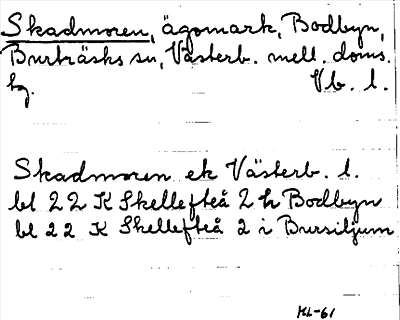 Skadmoren, ägomark, Bodbyn,
Burträsks sn, Västerb. mell. doms.
hg. Vb. l.
Skadmoren ek Västerb. l.
bl 22 K Skellefteå 2 h Bodbyn
bl 22 K Skellefteå 2 i Bursiljum
KL-61